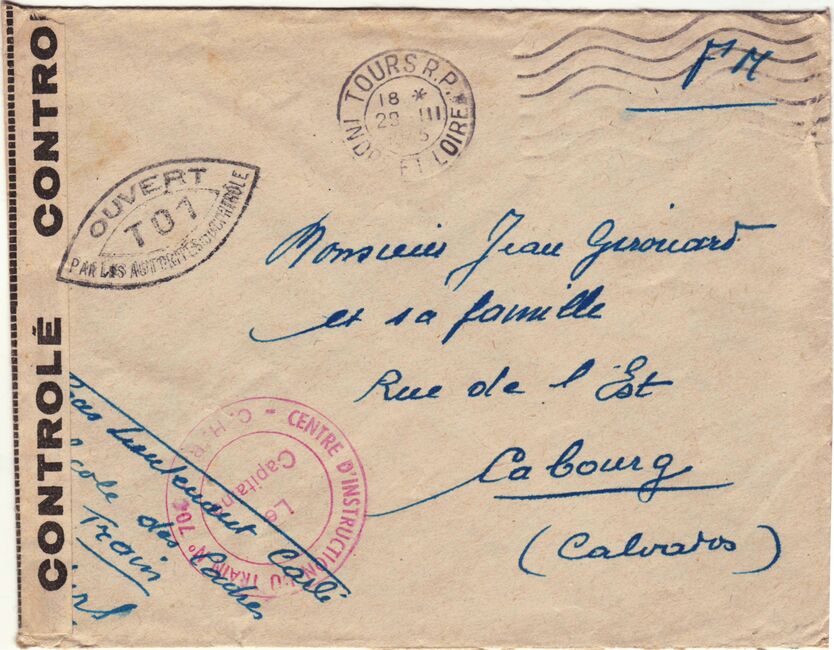 CONTROLÉ CONTRO
TOURS R.P. *
18 *
29 III
INDRE ET LOIRE
FM
OUVERT
T01
PAR LES AUTORITÉS DE CONTRÔLE
Monsieur Jean Girouard
et sa famille
Rue de l'Est
Cabourg
(Calvados)
CENTRE D'INSTRUCTION DU TRAIN N° 70
C. H. R.
Le
Capitain
Lieutenant Carli
cole des Cadres
Train